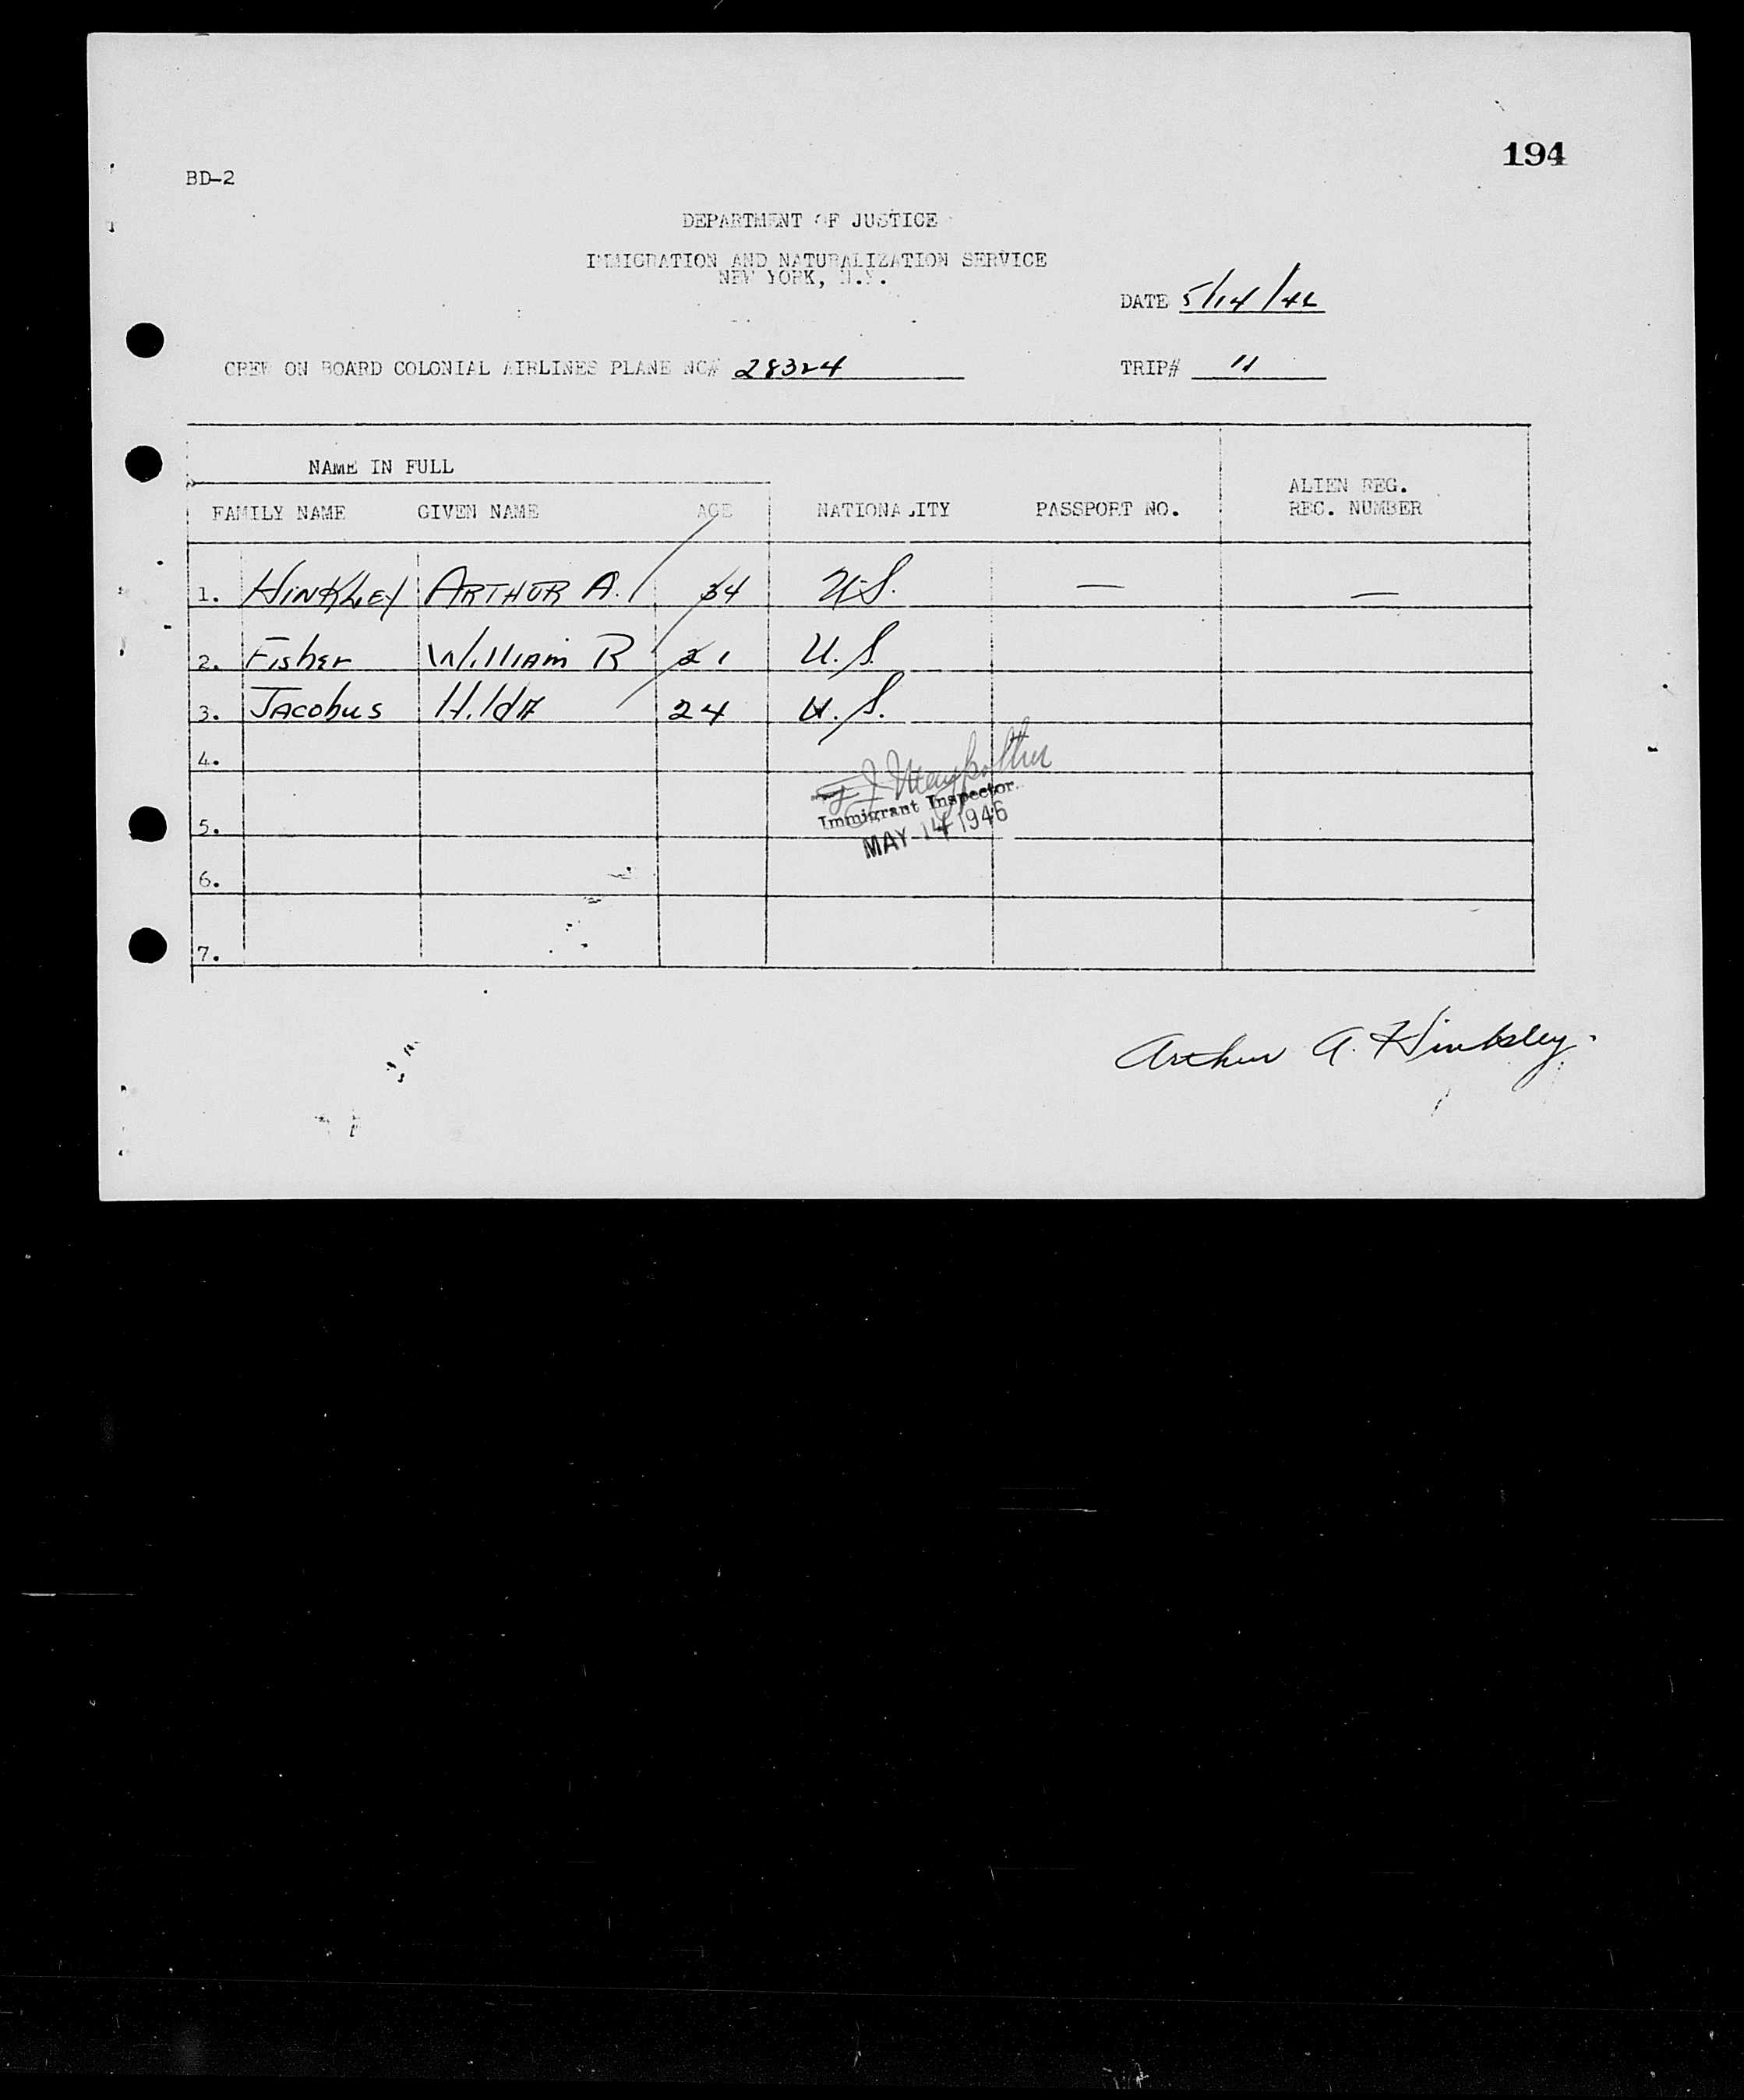 194
BD-2
DEPARTMENT OF JUSTICE
IMMIGRATION AND NATURALIZATION SERVICE
NEW YORK, N.Y.
DATE 5/14/46
CREW ON BOARD COLONIAL AIRLINES PLANE NC# 28324 TRIP# 11
NAME IN FULL
FAMILY NAME GIVEN NAME AGE NATIONALITY PASSPORT NO. ALIEN REG. REC. NUMBER
1. HINKLEY ARTHUR A. 34 U.S. — —
2. Fisher William R 21 U.S.
3. Jacobus Hilda 24 U.S.
4.
Immigrant Inspector.
5.
MAY 14 1946
6.
7.
Arthur A. Hinkley.